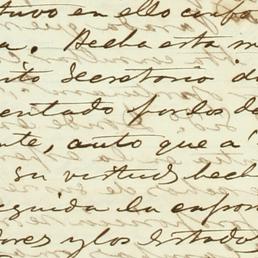 tuvo en ello cuan
a. Hecha esta m
ito Secretario d
entado fondos de
nte, auto que a
su virtud hech
eguida la espon
dores y los Estados